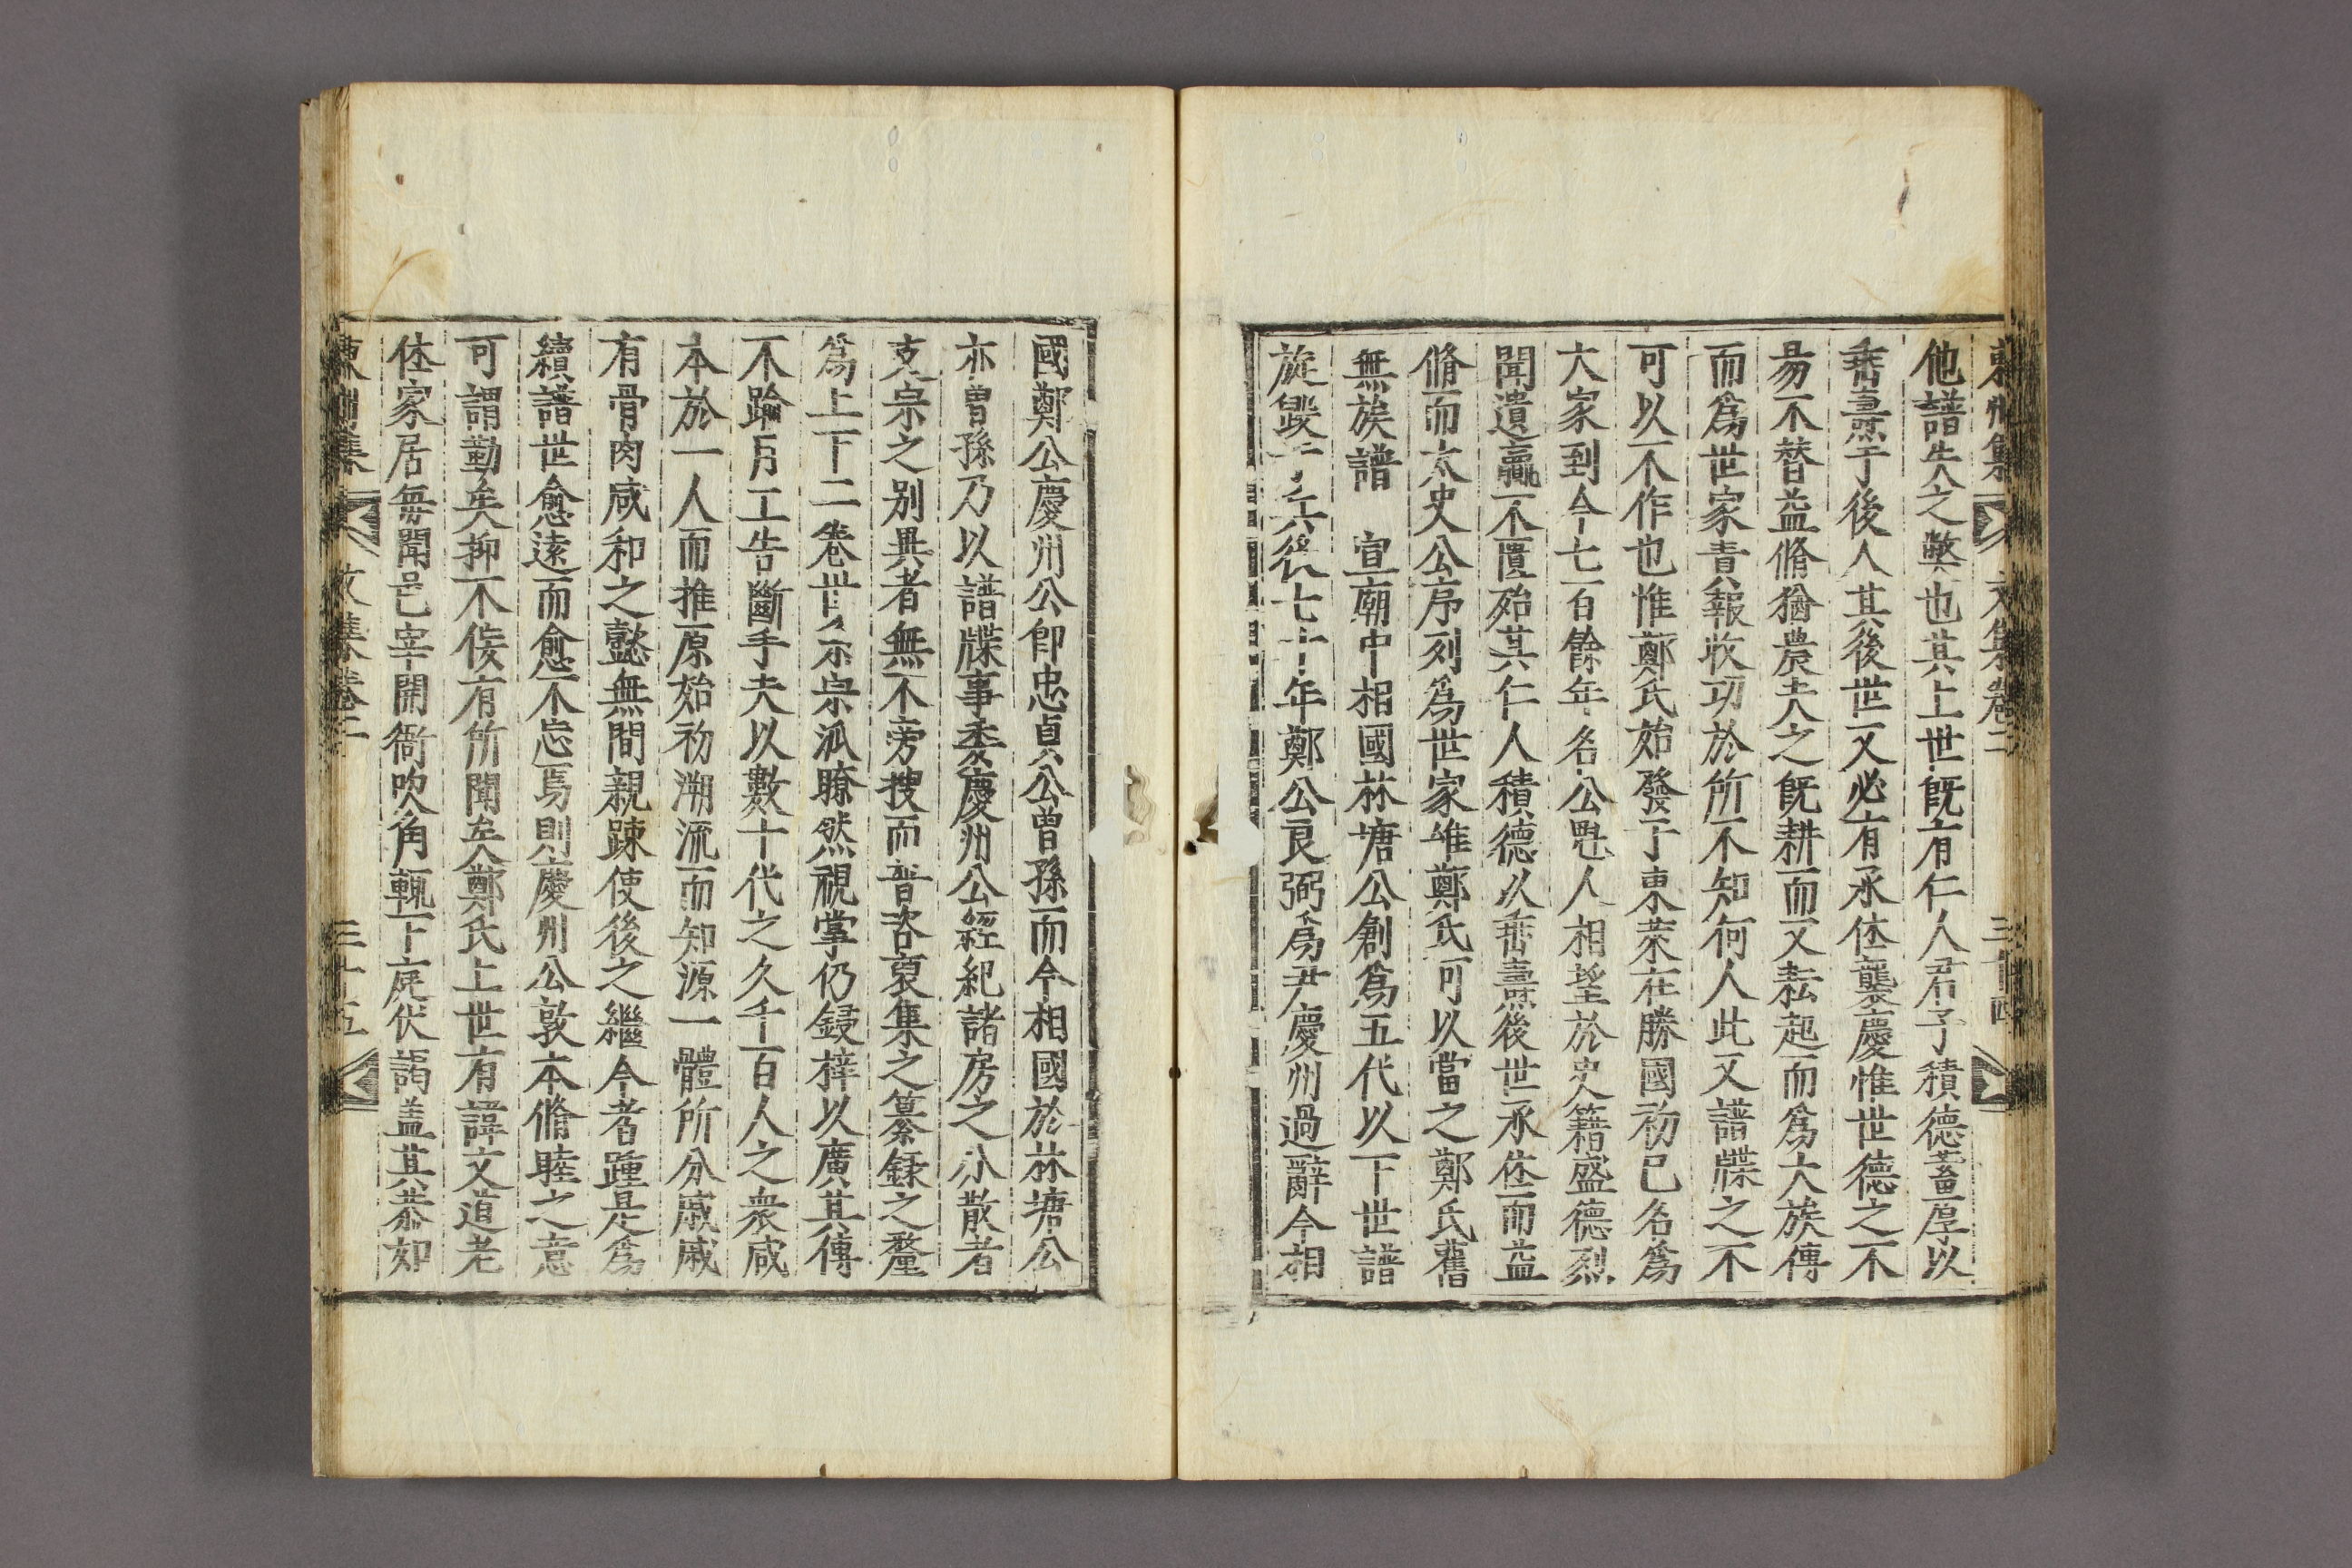 東州集 文集卷二 三十四
他譜失之弊也其上世旣有仁人君子積德畜厚以
垂燾于後人其後世又必有承休襲慶惟世德之不
易不替益脩猶農夫之旣耕而又耘起而爲大族傳
而爲世家責報收功於所不知何人此又譜牒之不
可以不作也惟鄭氏始發于東萊在勝國初已名爲
大家到今七百餘年名公魁人相望於史籍盛德烈
聞遺羸不匱殆其仁人積德以垂燾後世承休而益
脩而太史公序列爲世家唯鄭氏可以當之鄭氏舊
無族譜 宣廟中相國林塘公創爲五代以下世譜
旋毀于兵後七十年鄭公良弼爲尹慶州過辭今相
國鄭公慶州公卽忠貞公曾孫而今相國於林塘公
亦曾孫乃以譜牒事委慶州公經紀諸房之分散者
支宗之別異者無不旁搜而普咨裒集之纂錄之釐
爲上下二卷世系宗派瞭然視掌仍鋟梓以廣其傳
不踰月工告斷手夫以數十代之久千百人之衆咸
本於一人而推原始初溯流而知源一體所分戚戚
有骨肉咸和之懿無間親踈使後之繼今者踵是爲
續譜世愈遠而愈不忘焉則慶州公敦本脩睦之意
可謂勤矣抑不佞有所聞矣鄭氏上世有諱文道老
休家居每聞邑宰開衙吹角輒下庭伏謁盖其恭如
東州集 文集卷二 三十五